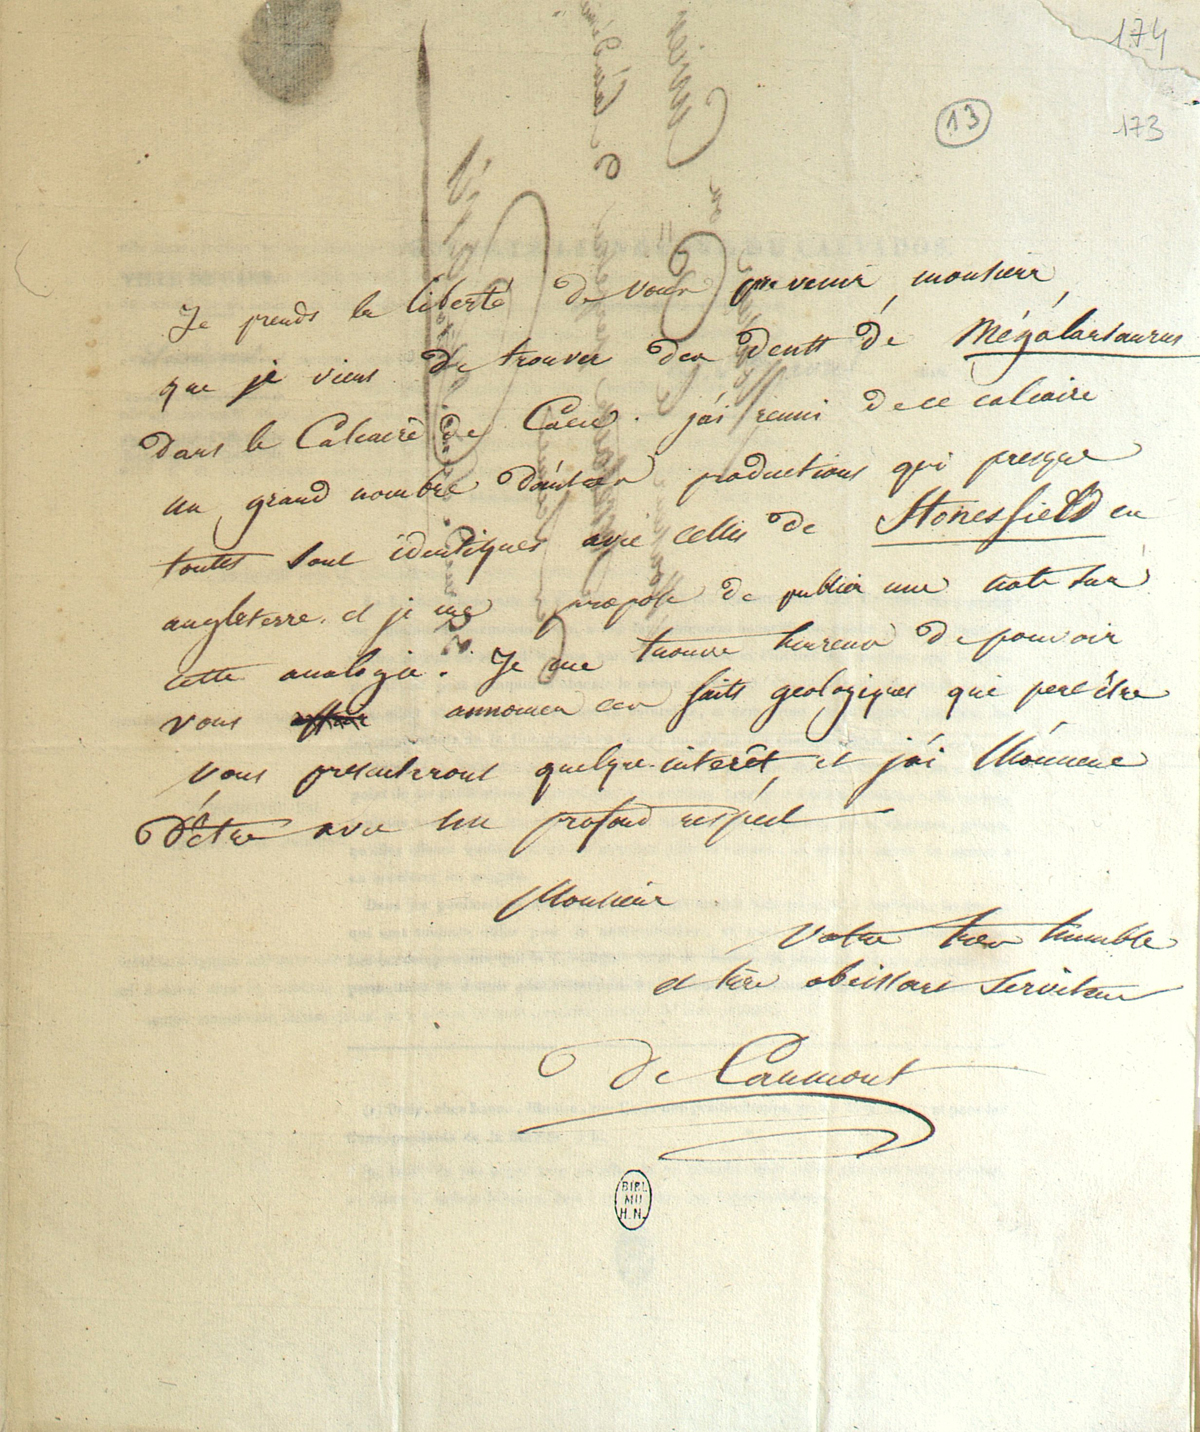 174
13
173
Je prends la liberté de vous prevenir, monsieur
que je viens de trouver des dents de Mégalosaurus
dans le Calcaire de Caen. j'ai reuni de ce calcaire
un grand nombre d'autres productions qui presque
toutes sont identiques avec celles de Stonesfield en
angleterre. et je me propose de publier une note sur
cette analogie. Je me trouve heureux de pouvoir
vous annoncer ces faits geologiques qui peut être
vous presenteront quelque interêt et j'ai l'honneur
d'être avec un profond respect
Monsieur
Votre tres humble
et très obeissant Serviteur
De Caumont
BIBL
MU
H.N.